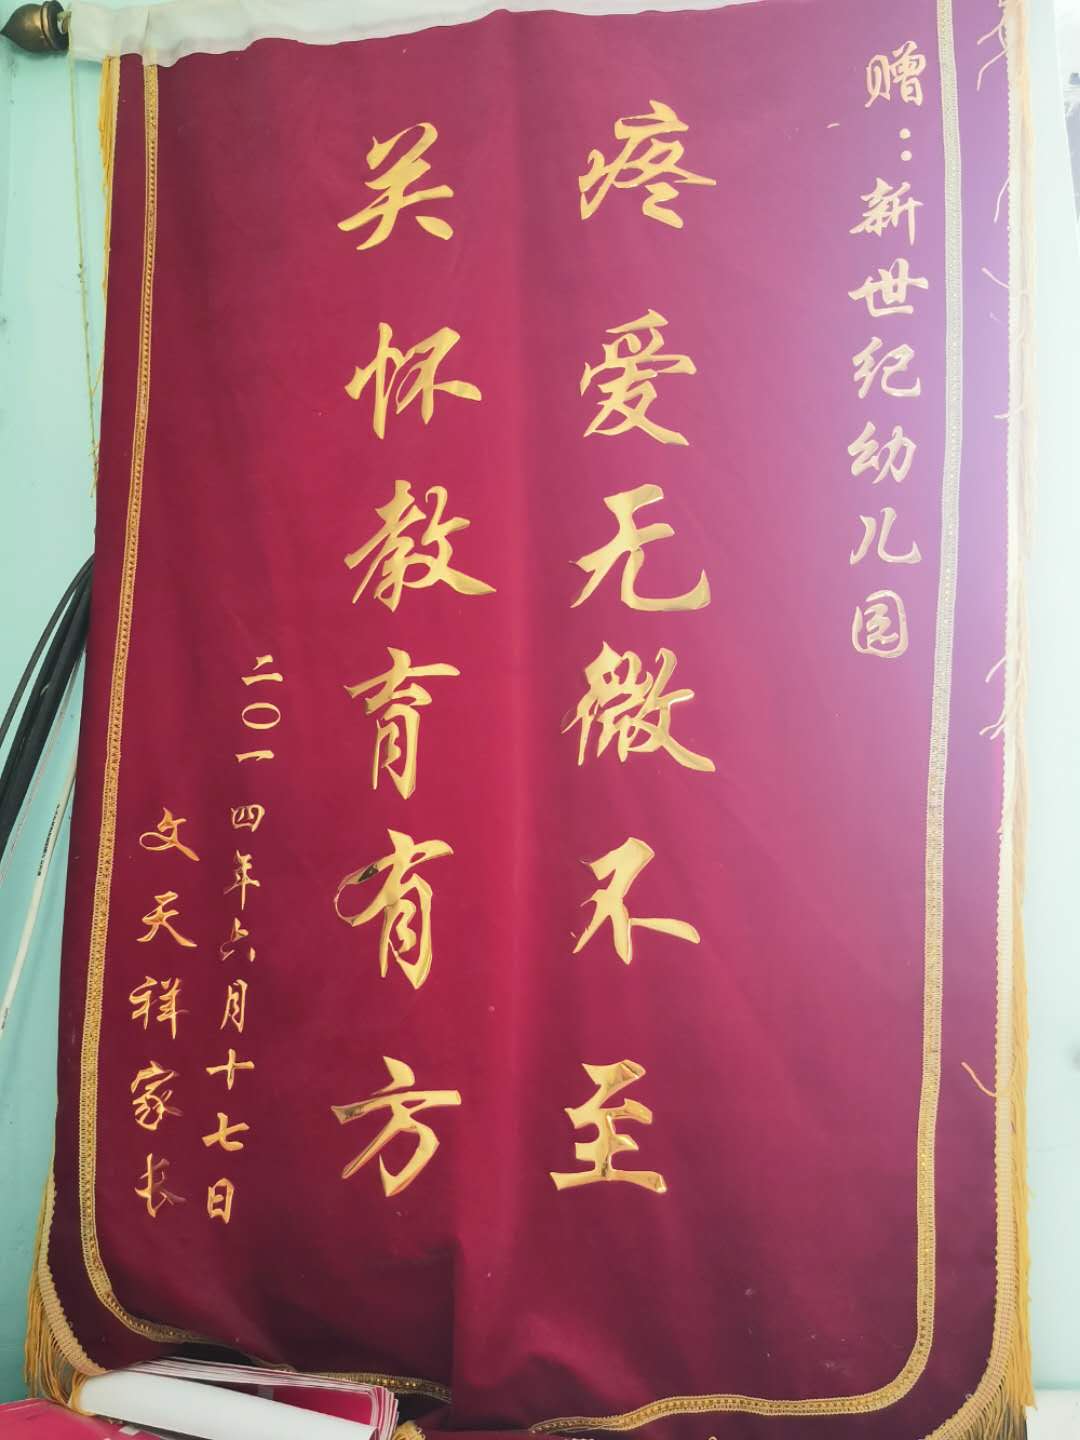 赠：新世纪幼儿园
疼爱无微不至
关怀教育有方
二〇一四年六月十七日
文天祥家长